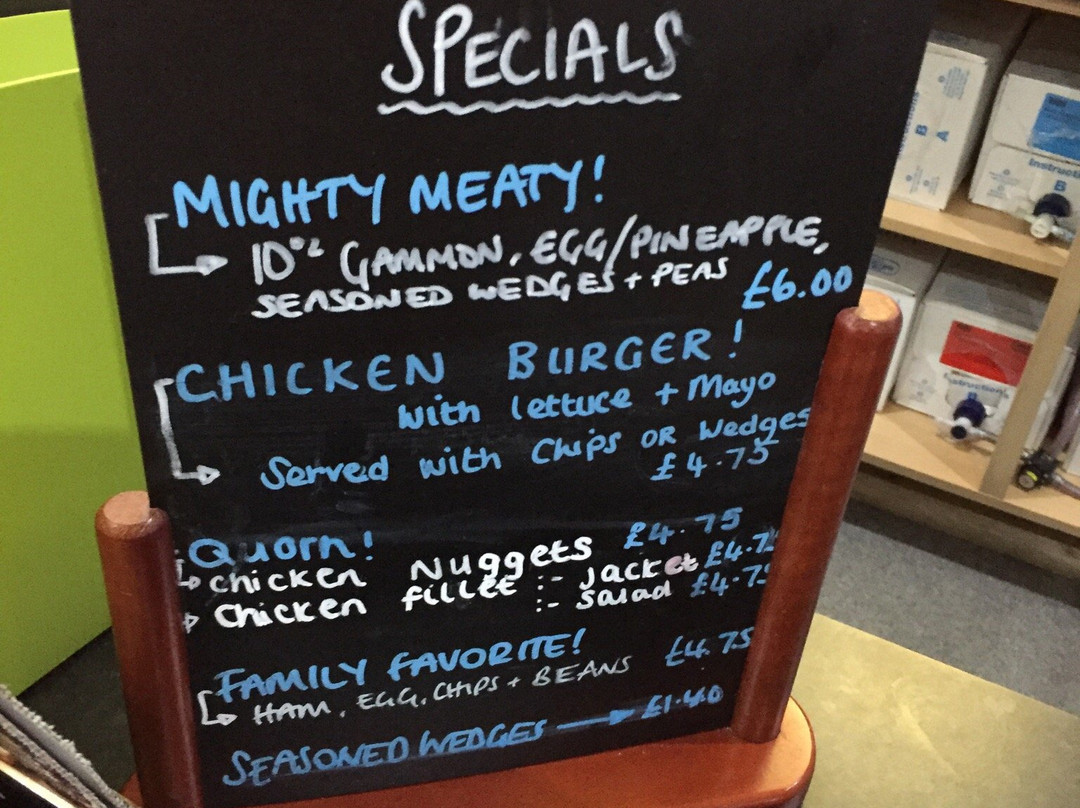 SPECIALS
MIGHTY MEATY!
10oz GAMMON, EGG/PINEAPPLE,
SEASONED WEDGES + PEAS
£6.00
CHICKEN BURGER!
with lettuce + Mayo
Served with Chips OR Wedges
£4.75
Quorn!
chicken Nuggets £4.75
Chicken fillet :- Jacket £4.75
:- Salad £4.75
FAMILY FAVORITE! £4.75
HAM, EGG, CHIPS + BEANS
SEASONED WEDGES £1.40
B
A
Instructi
B
Instructions